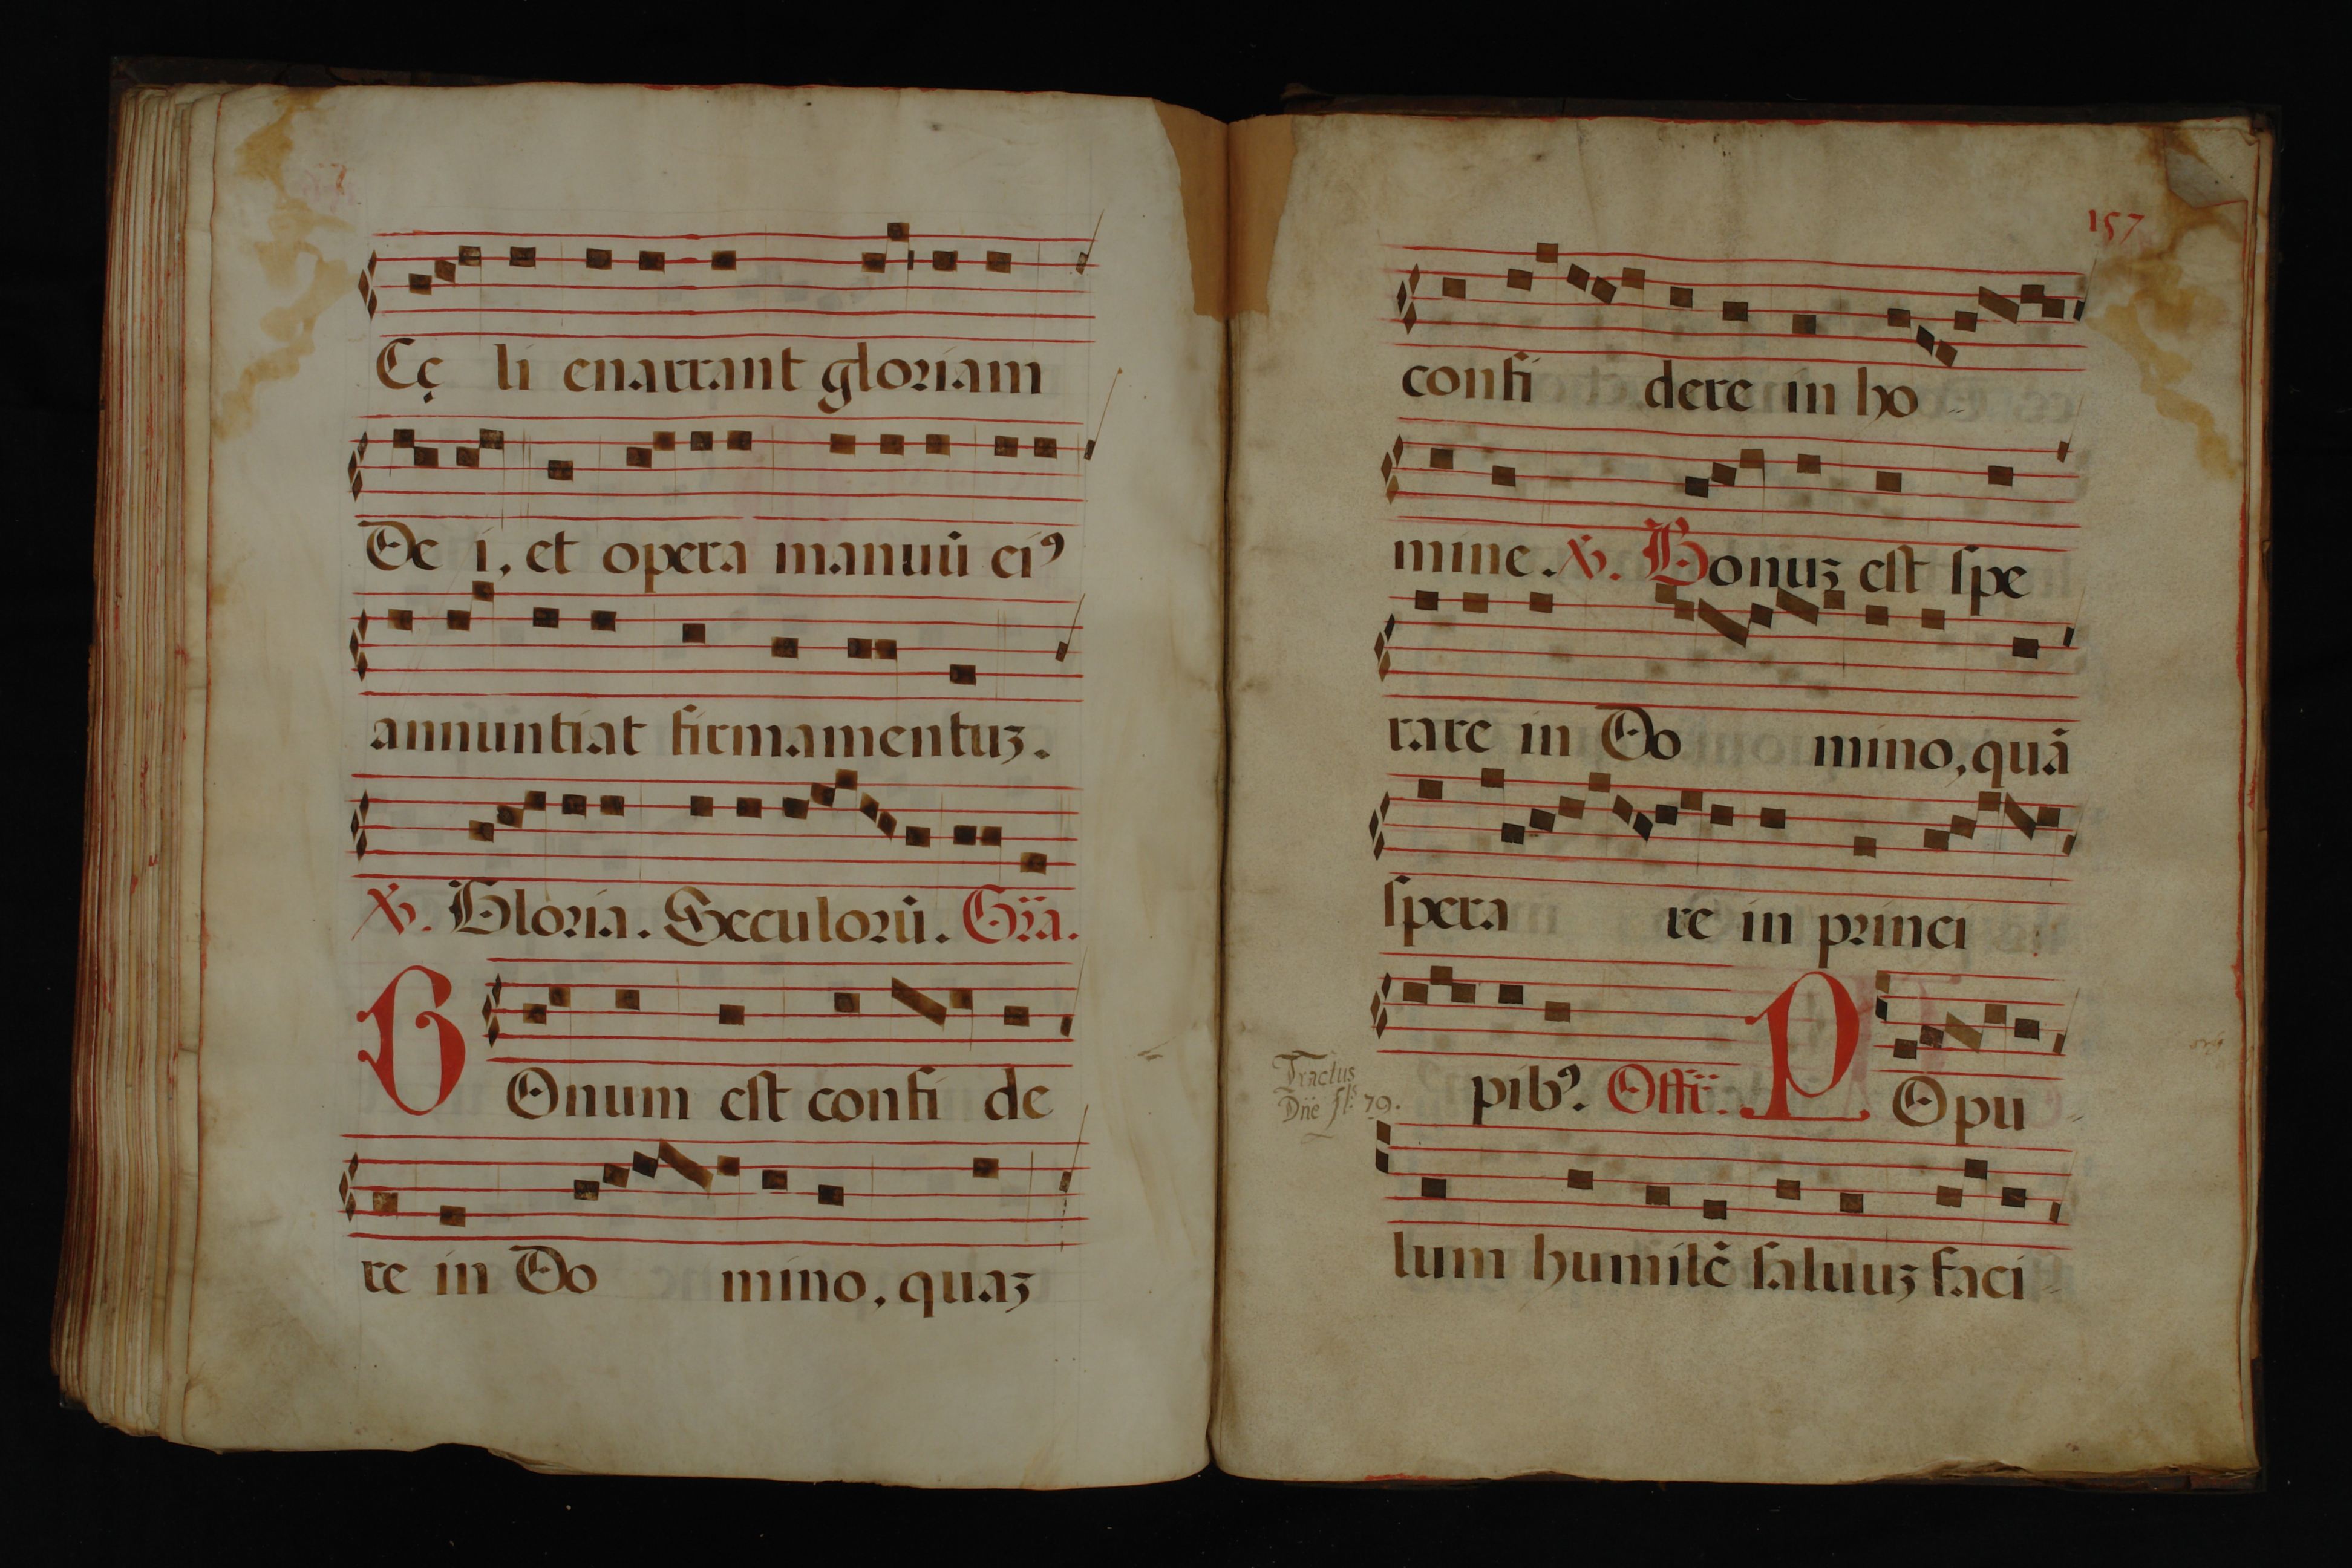 Cę li enarrant gloriam
De i, et opera manuū eiꝰ
annuntiat firmamentuꝫ.
℣. Gloria. Seculorū. Gra.
BOnum est confi de
re in Do mino, quaꝫ
157
confi dere in ho-
mine. ℣. Bonuꝫ est spe
rare in Do mino, quā
spera re in princi
pibꝰ. Offū. POpu-
Tractus
Dñe fl: 79.
lum humilē saluuꝫ faci-